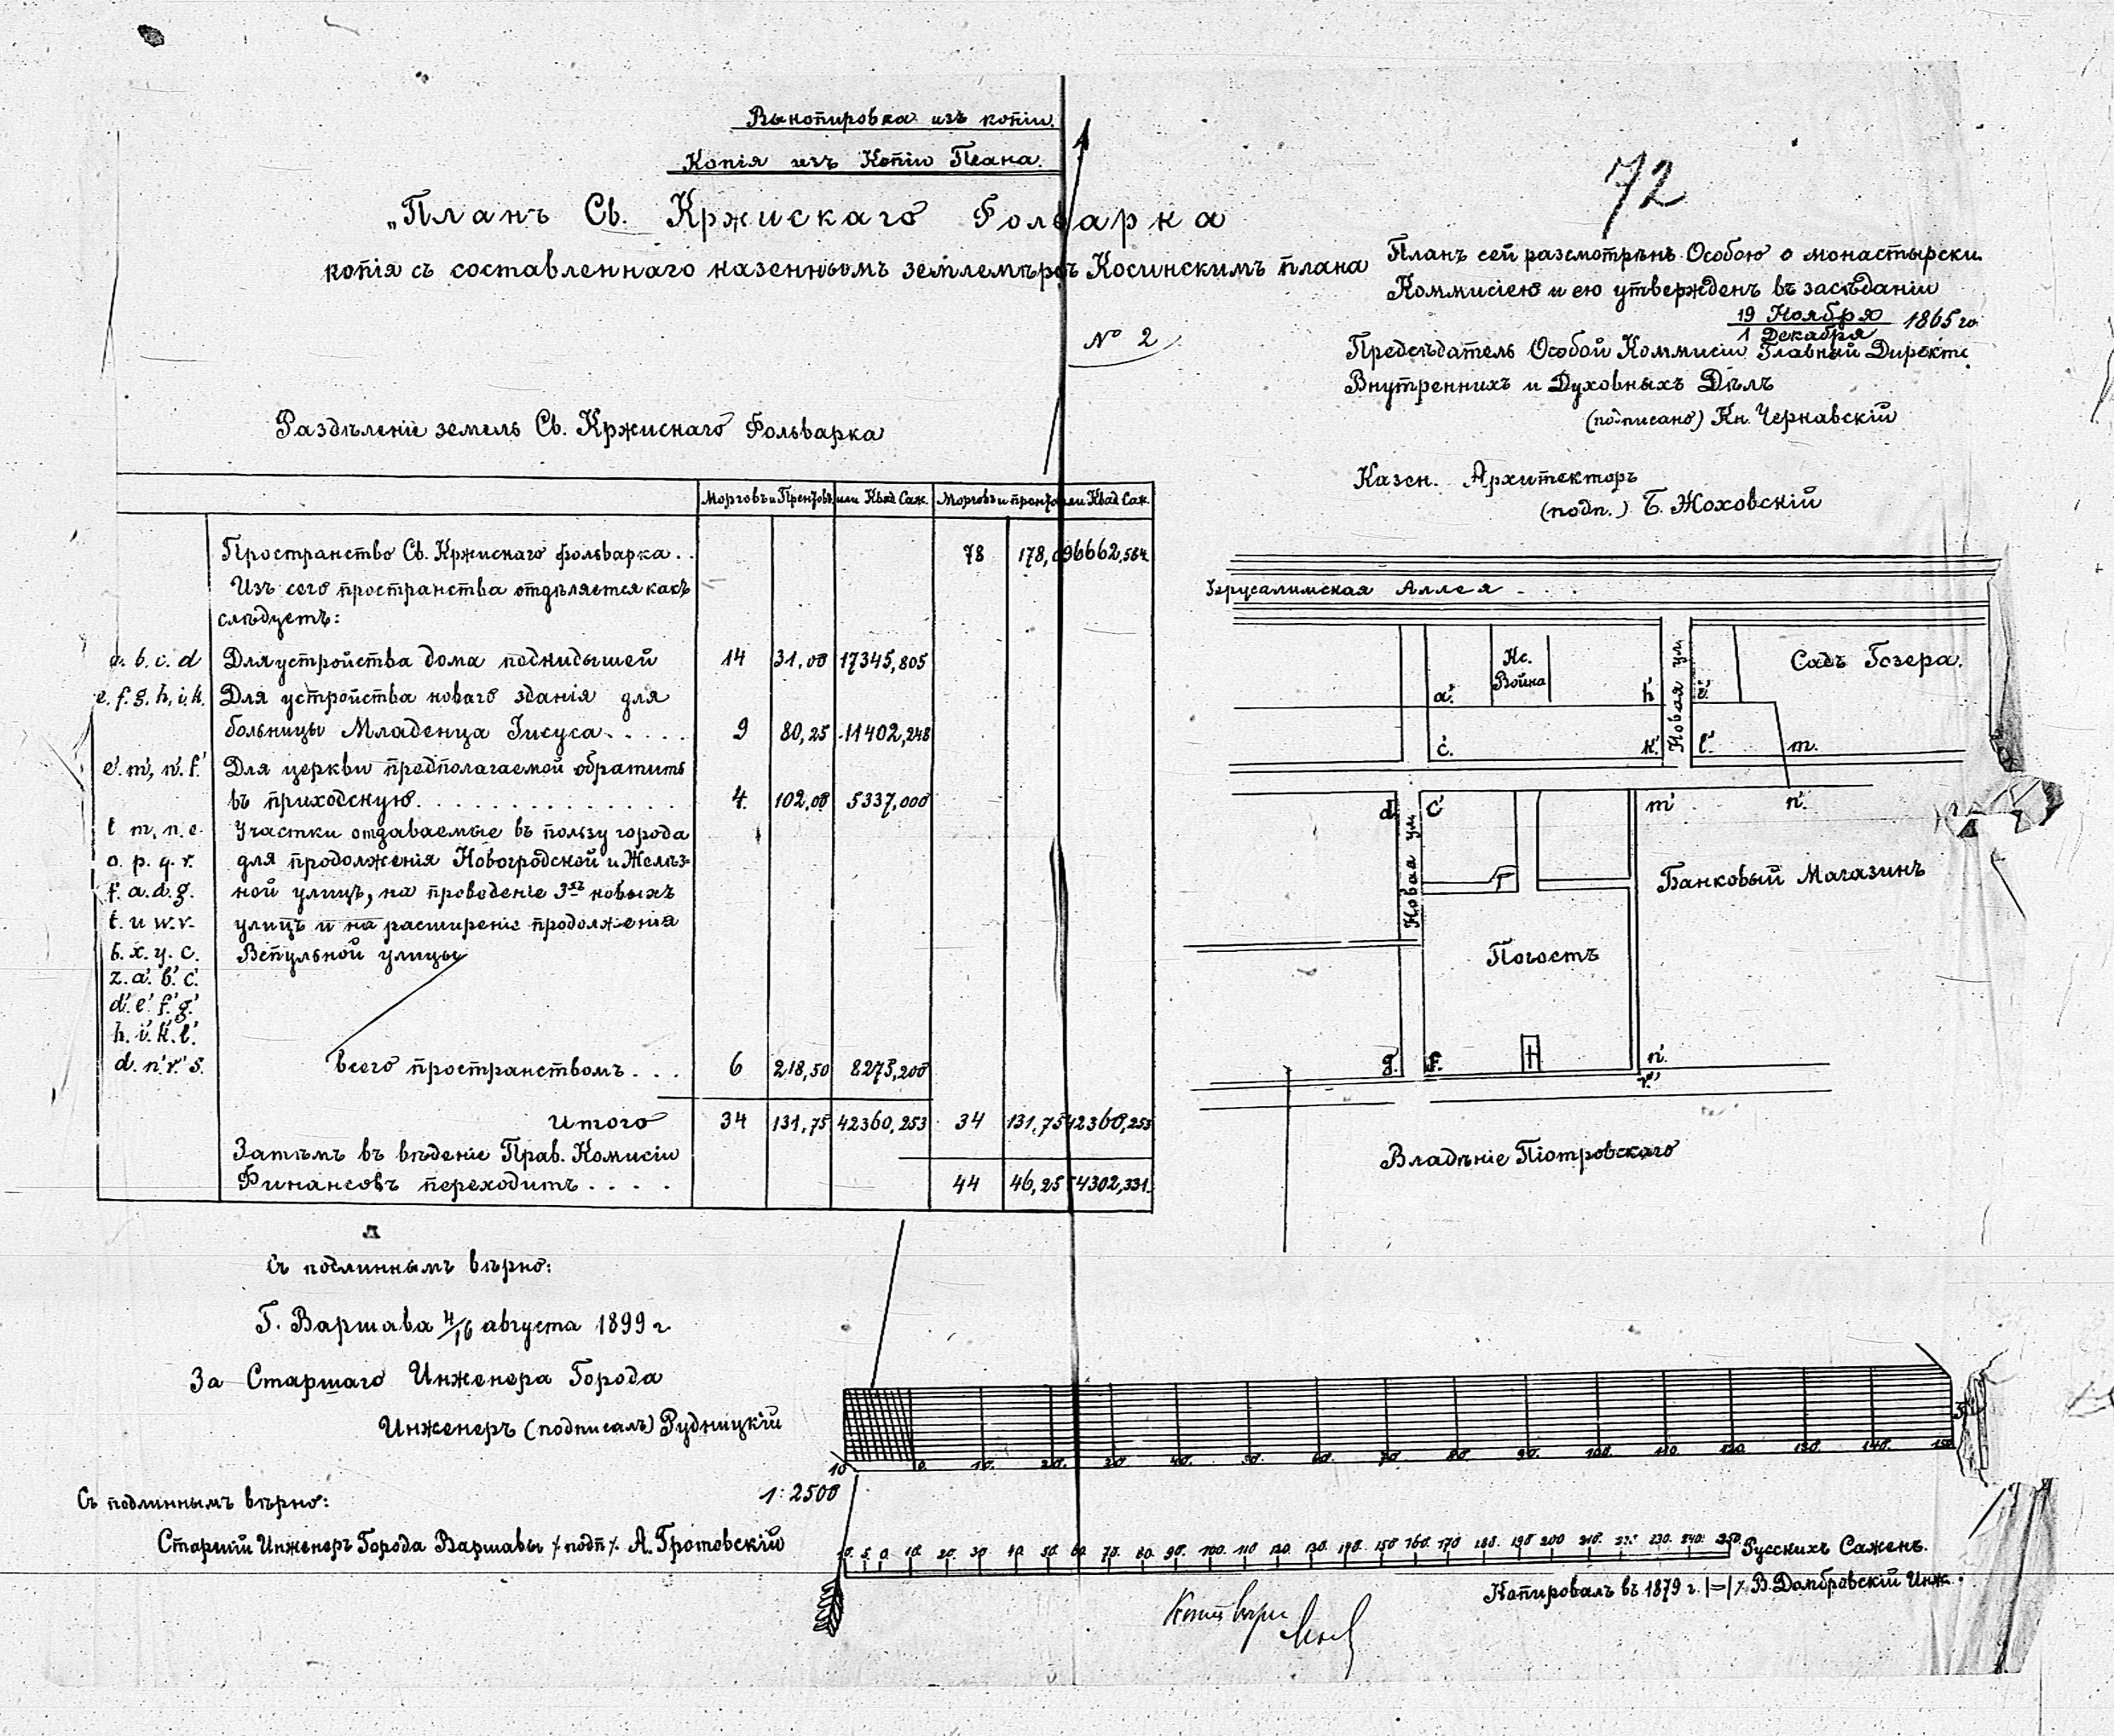 Выкопировка изъ копіи.
Копія изъ Копіи Плана.
„Планъ Св. Кржискаго Фольварка
копія съ составленнаго казеннымъ землемѣромъ Косинскимъ плана
№ 2
72
Планъ сей разсмотрѣнъ Особою о монастырски.
Коммисіею и ею утвержденъ въ засѣданіи
19 Ноября
1 Декабря
1865 го
Предсѣдатель Особой Коммисіи Главный Директ
Внутреннихъ и Духовныхъ Дѣлъ
(подписано) Кн. Чернавскій
Казен. Архитекторъ
(подп.) Б. Жоховскій
Раздѣленіе земель Св. Кржискаго Фольварка
Морговъ и Прентовъ или Квад Саж. Морговъ и прентовъ или Квад Саж.
Пространство Св. Кржискаго фольварка . . 78
Изъ сего пространства отдѣляется какъ
слѣдуетъ:
a. b. c. d Для устройства дома подкидышей 14 31,00 17345,805
e. f. g. h. i. k. Для устройства новаго зданія для
больницы Младенца Іисуса . . . . . 9 80,25 11402,248
e'. m', n'. f.' Для церкви предполагаемой обратить
въ приходскую . . . . . . . . . . . . . . 4. 102,00 5337,000
l m, n. e. Участки отдаваемые въ пользу города
o. p. q. r. для продолженія Новогродской и Желѣз-
f. a. d. g. ной улицъ, на проведеніе 3хъ новыхъ
t. u w. v. улицъ и на расширеніе продолженія
b. x. y. c. Вспульной улицы
z. a'. b'. c'.
d'. e'. f'. g'.
h'. i'. k'. l'.
d. n'. r'. s. всего пространствомъ . . . 6 218,50 8275,200
Итого 34 131,75 42360,253 34 131,75 42360,253
Затѣмъ въ вѣденіе Прав. Комисіи
Финансовъ переходитъ . . . . 44 46,25 54302,331.
Іерусалимская Аллея
Садъ Гозера.
Война
Новая ул
a'. h' k'. l'. m.
d c' m' n'.
Новая ул
Банковый Магазинъ
Погостъ
g. f. n'. r'
Владѣніе Піотровскаго
Съ подлиннымъ вѣрно:
Г. Варшава 4/16 августа 1899 г.
За Старшаго Инженера Города
Инженеръ (подписалъ) Рудницкій
Съ подлиннымъ вѣрно:
Старшій Инженеръ Города Варшавы /подп/. А. Гротовскій
10 0. 10. 20. 30. 40. 50. 60. 70. 80. 90. 100. 110. 120. 130. 140. 150
1:2500
10. 5. 0. 10. 20. 30. 40. 50. 60. 70. 80. 90. 100. 110 120. 130. 140. 150 160. 170 180. 190 200 210. 230. 240. 250. Русскихъ Сажень.
Копировалъ въ 1879 г. В. Домбровскій Инж.